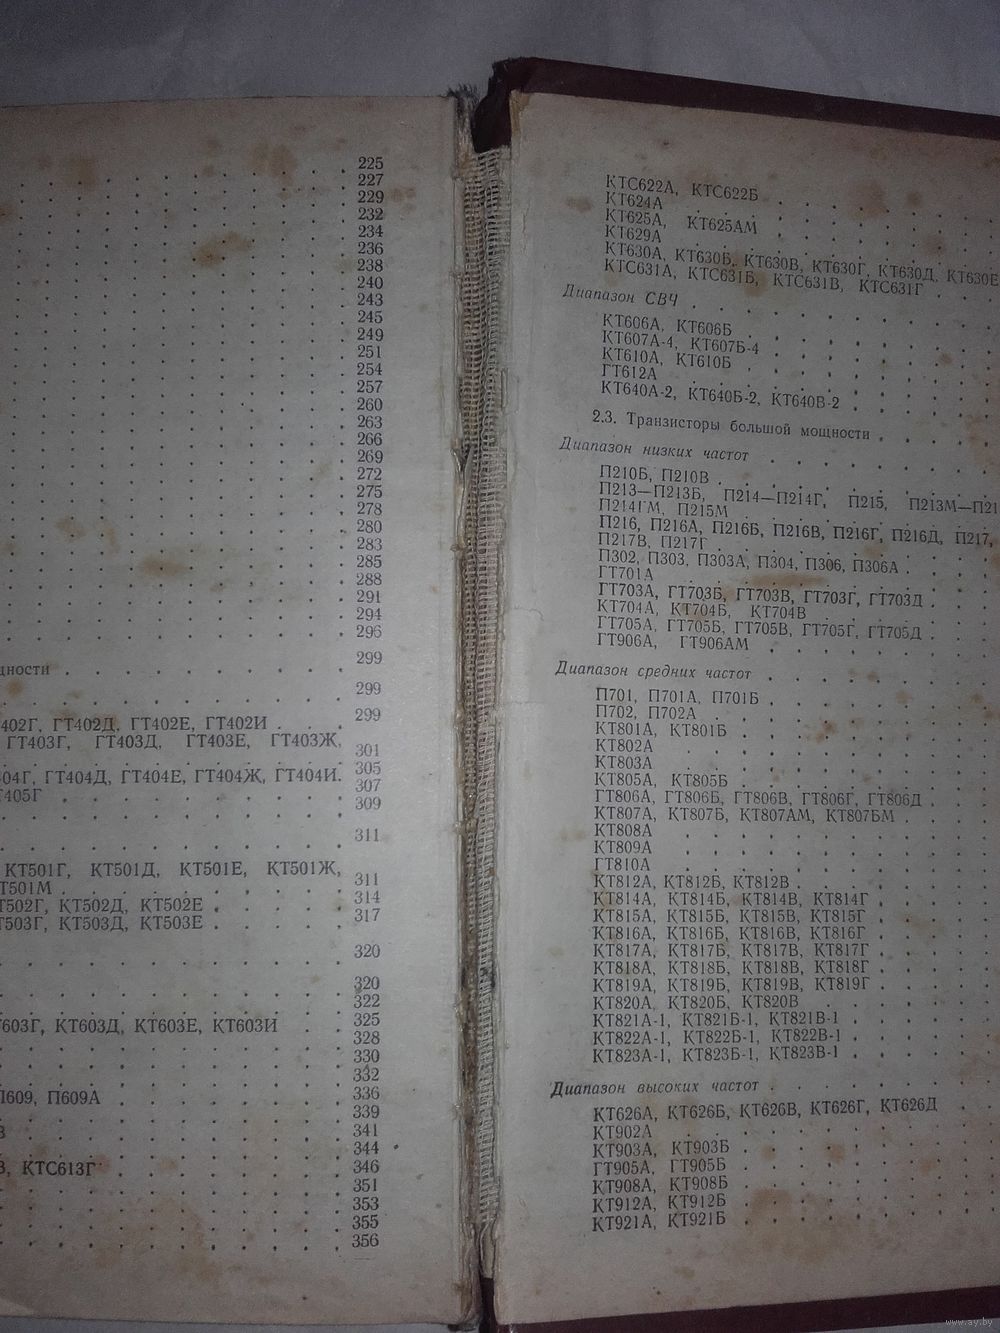 225
227
229
232
234
236
238
240
243
245
249
251
254
257
260
263
266
269
272
275
278
280
283
285
288
291
294
296
щности . . . . . . . . . 299
299
402Г, ГТ402Д, ГТ402Е, ГТ402И . . . 299
ГТ403Г, ГТ403Д, ГТ403Е, ГТ403Ж,
301
404Г, ГТ404Д, ГТ404Е, ГТ404Ж, ГТ404И. 305
405Г . . . . . . . . . 307
309
311
КТ501Г, КТ501Д, КТ501Е, КТ501Ж,
Т501М . . . . . . . . . 311
Т502Г, КТ502Д, КТ502Е . . . . . 314
Т503Г, КТ503Д, КТ503Е . . . . . 317
320
320
322
Т603Г, КТ603Д, КТ603Е, КТ603И . . 325
328
330
332
П609, П609А . . . . . . . . 336
339
В . . . . . . . . . . 341
344
В, КТС613Г . . . . . . . . 346
351
353
355
356
КТС622А, КТС622Б . . . . . .
КТ624А . . . . . . . . .
КТ625А, КТ625АМ . . . . . .
КТ629А . . . . . . . . .
КТ630А, КТ630Б, КТ630В, КТ630Г, КТ630Д, КТ630Е
КТС631А, КТС631Б, КТС631В, КТС631Г . .
Диапазон СВЧ . . . . . . . .
КТ606А, КТ606Б . . . . . . .
КТ607А-4, КТ607Б-4 . . . . . .
КТ610А, КТ610Б . . . . . . .
ГТ612А . . . . . . . . .
КТ640А-2, КТ640Б-2, КТ640В-2 . . . .
2.3. Транзисторы большой мощности . . . .
Диапазон низких частот . . . . . .
П210Б, П210В . . . . . . . .
П213—П213Б, П214—П214Г, П215, П213М—П21
П214ГМ, П215М . . . . . . .
П216, П216А, П216Б, П216В, П216Г, П216Д, П217,
П217В, П217Г . . . . . . . .
П302, П303, П303А, П304, П306, П306А . . .
ГТ701А . . . . . . . . .
ГТ703А, ГТ703Б, ГТ703В, ГТ703Г, ГТ703Д . .
КТ704А, КТ704Б, КТ704В . . . . .
ГТ705А, ГТ705Б, ГТ705В, ГТ705Г, ГТ705Д . .
ГТ906А, ГТ906АМ . . . . . . .
Диапазон средних частот . . . . . .
П701, П701А, П701Б . . . . . .
П702, П702А . . . . . . . .
КТ801А, КТ801Б . . . . . . .
КТ802А . . . . . . . . .
КТ803А . . . . . . . . .
КТ805А, КТ805Б . . . . . . .
ГТ806А, ГТ806Б, ГТ806В, ГТ806Г, ГТ806Д . .
КТ807А, КТ807Б, КТ807АМ, КТ807БМ . . .
КТ808А . . . . . . . . .
КТ809А . . . . . . . . .
ГТ810А . . . . . . . . .
КТ812А, КТ812Б, КТ812В . . . . .
КТ814А, КТ814Б, КТ814В, КТ814Г . . . .
КТ815А, КТ815Б, КТ815В, КТ815Г . . . .
КТ816А, КТ816Б, КТ816В, КТ816Г . . . .
КТ817А, КТ817Б, КТ817В, КТ817Г . . . .
КТ818А, КТ818Б, КТ818В, КТ818Г . . . .
КТ819А, КТ819Б, КТ819В, КТ819Г . . . .
КТ820А, КТ820Б, КТ820В . . . . .
КТ821А-1, КТ821Б-1, КТ821В-1 . . . .
КТ822А-1, КТ822Б-1, КТ822В-1 . . . .
КТ823А-1, КТ823Б-1, КТ823В-1 . . . .
Диапазон высоких частот . . . . . .
КТ626А, КТ626Б, КТ626В, КТ626Г, КТ626Д . .
КТ902А . . . . . . . . .
КТ903А, КТ903Б . . . . . . .
ГТ905А, ГТ905Б . . . . . . .
КТ908А, КТ908Б . . . . . . .
КТ912А, КТ912Б . . . . . . .
КТ921А, КТ921Б . . . . . . .
www.ay.by